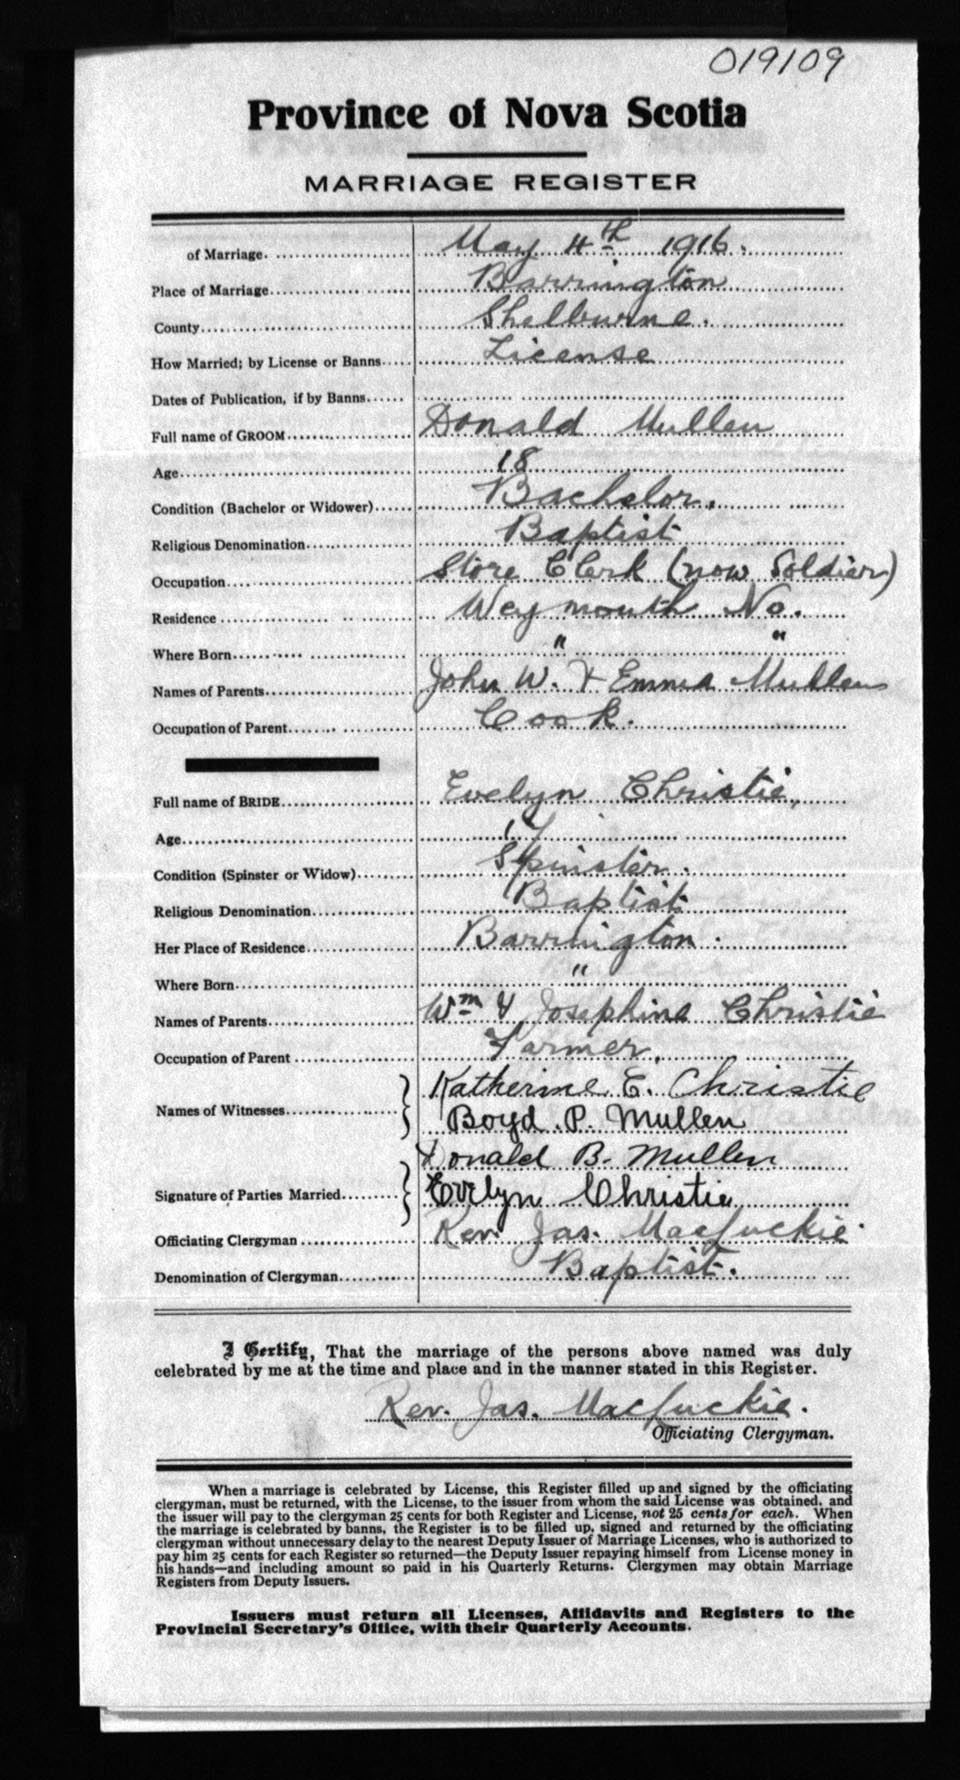 019109
Province of Nova Scotia
MARRIAGE REGISTER
of Marriage. May 4th 1916.
Place of Marriage Barrington
County Shelburne.
How Married; by License or Banns License
Dates of Publication, if by Banns
Full name of GROOM Donald Mullen
Age 18
Condition (Bachelor or Widower) Bachelor.
Religious Denomination Baptist
Occupation Store Clerk (now Soldier)
Residence Weymouth No.
Where Born " "
Names of Parents John W. & Emma Mullen
Occupation of Parent Cook.
Full name of BRIDE Evelyn Christie,
Age 17
Condition (Spinster or Widow) Spinster.
Religious Denomination Baptist
Her Place of Residence Barrington.
Where Born "
Names of Parents Wm & Josephine Christie
Occupation of Parent Farmer.
Katherine E. Christie
Names of Witnesses
Boyd P. Mullen
Donald B. Mullen
Signature of Parties Married Evelyn Christie
Officiating Clergyman Rev. Jas. MacLuckie.
Denomination of Clergyman Baptist.
I Certify, That the marriage of the persons above named was duly
celebrated by me at the time and place and in the manner stated in this Register.
Rev. Jas. MacLuckie.
Officiating Clergyman.
When a marriage is celebrated by License, this Register filled up and signed by the officiating
clergyman, must be returned, with the License, to the issuer from whom the said License was obtained, and
the issuer will pay to the clergyman 25 cents for both Register and License, not 25 cents for each. When
the marriage is celebrated by banns, the Register is to be filled up, signed and returned by the officiating
clergyman without unnecessary delay to the nearest Deputy Issuer of Marriage Licenses, who is authorized to
pay him 25 cents for each Register so returned—the Deputy Issuer repaying himself from License money in
his hands—and including amount so paid in his Quarterly Returns. Clergymen may obtain Marriage
Registers from Deputy Issuers.
Issuers must return all Licenses, Affidavits and Registers to the
Provincial Secretary's Office, with their Quarterly Accounts.